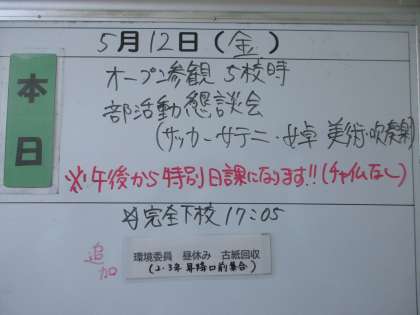 5月12日(金)
本日
オープン参観 5校時
部活動懇談会
(サッカー・サテニ・女卓 美術・吹奏楽)
※午後から特別日課になります!!(チャイムなし)
完全下校 17:05
追加
環境委員 昼休み 古紙回収
(2.3年昇降口前集合)